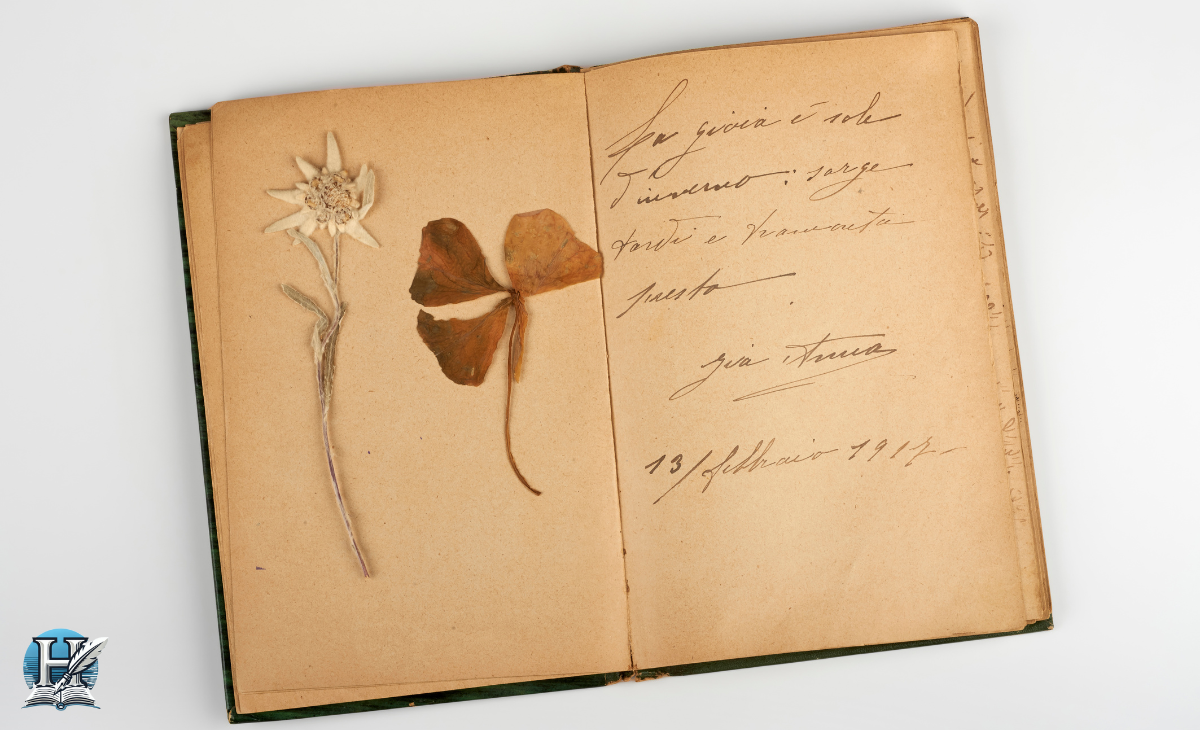 La gioia è sole
d'inverno: sorge
tardi e tramonta
presto.
zia Anna
13/febbraio 1917-
H